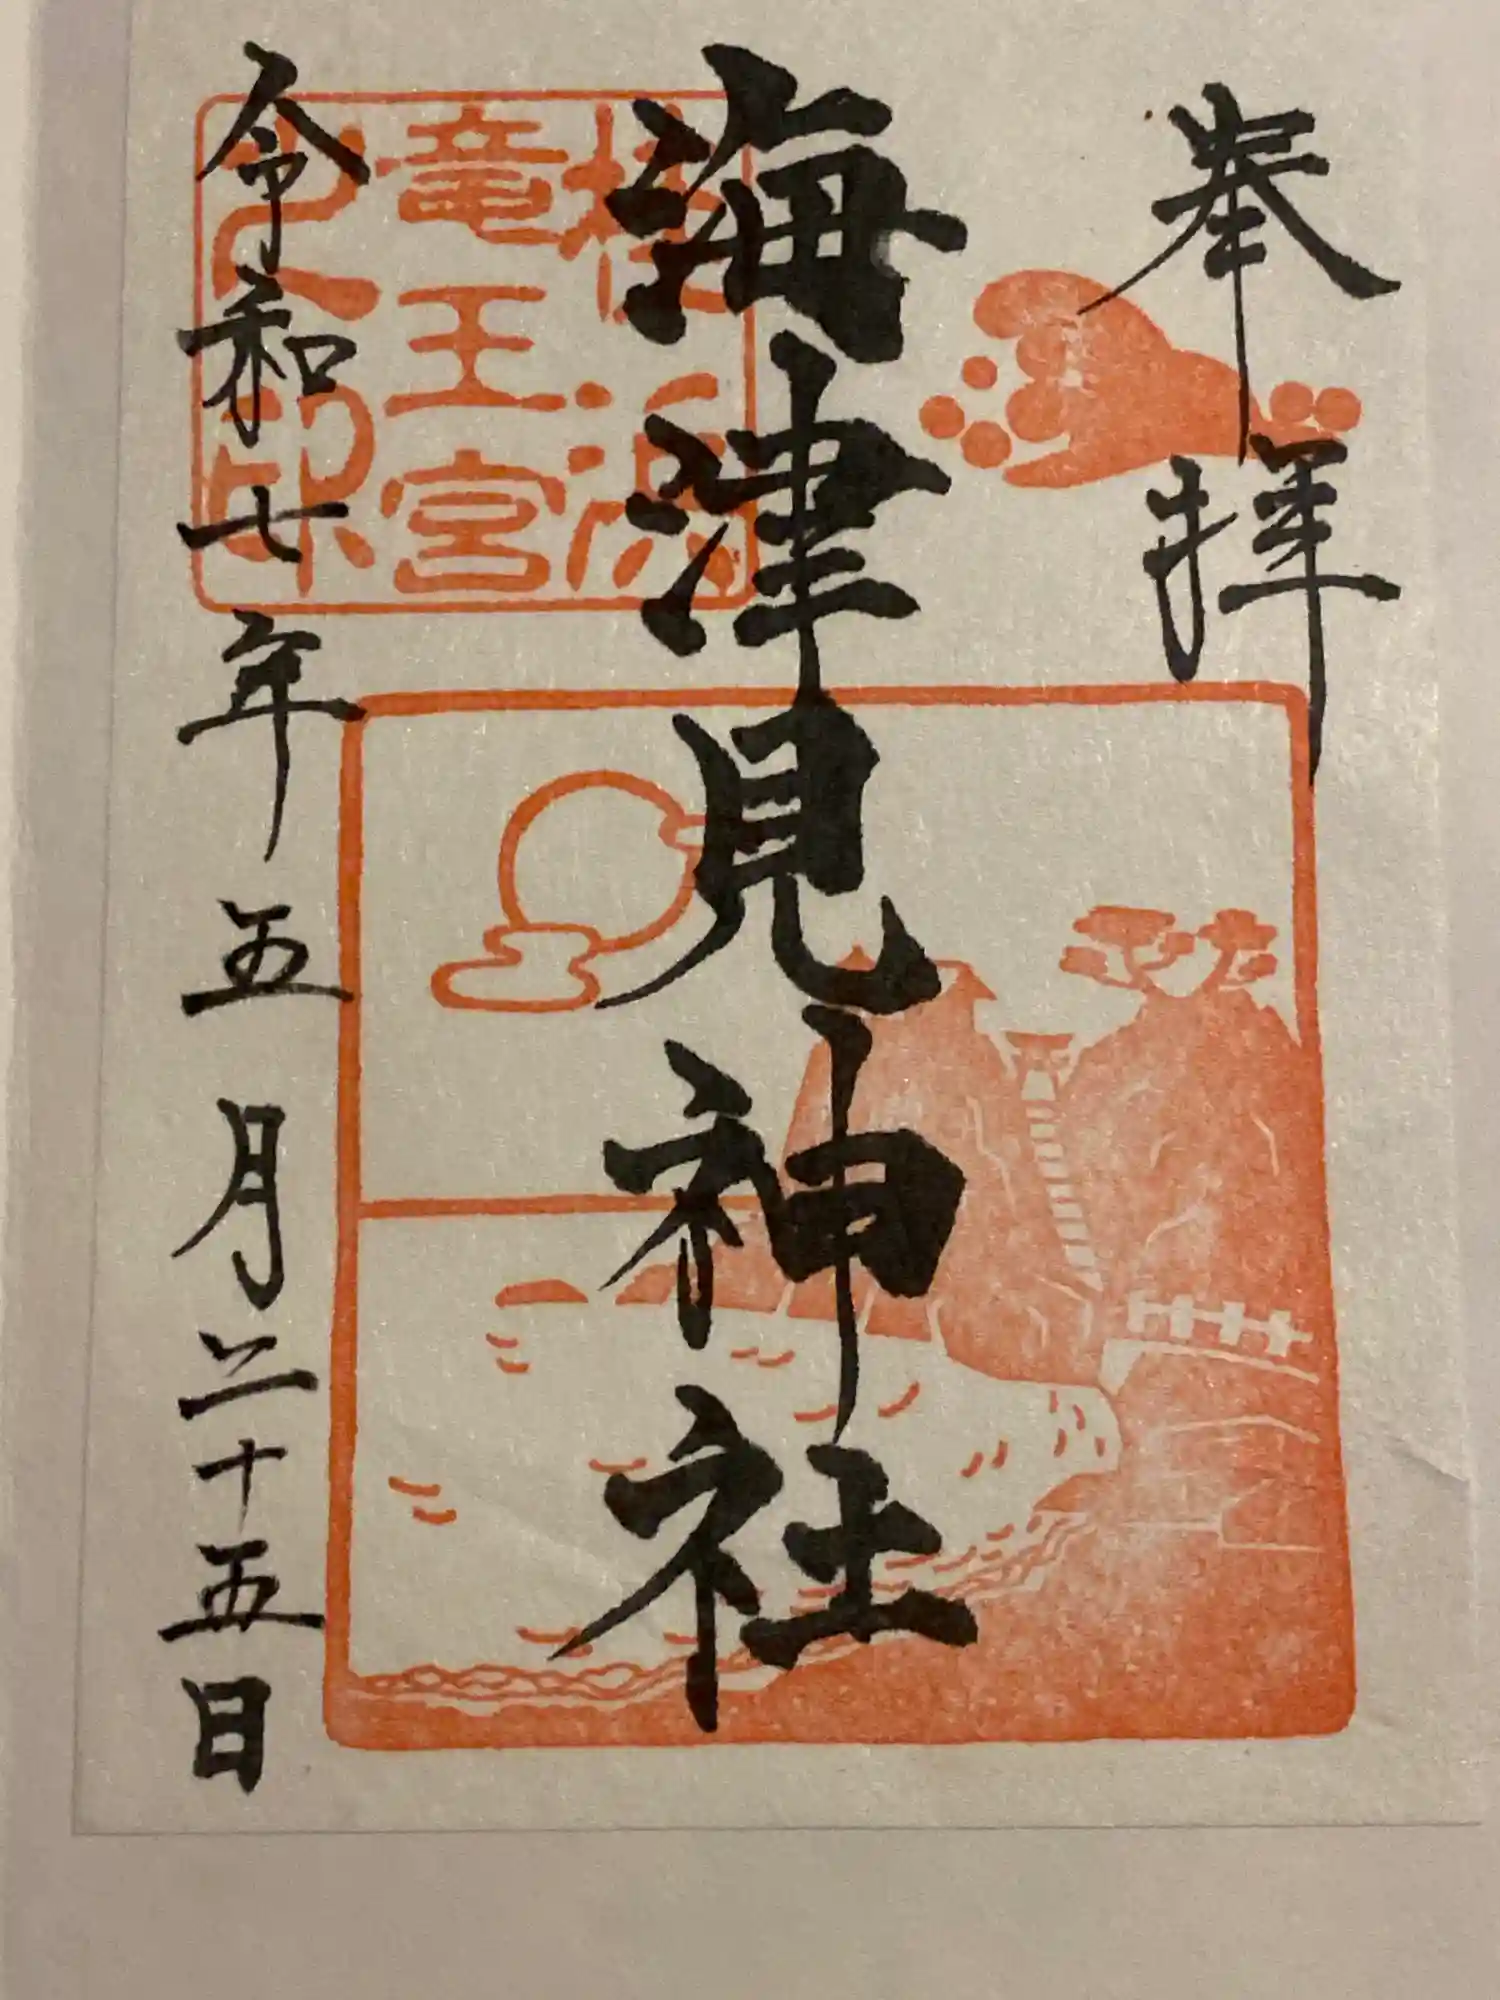 奉拝
海津見神社
桂浜
竜王宮
之印
令和七年五月二十五日